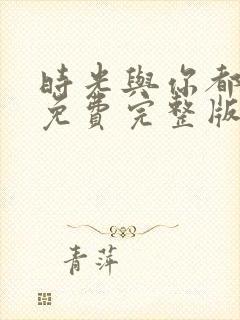 時光與你都
免費完整版
青萍